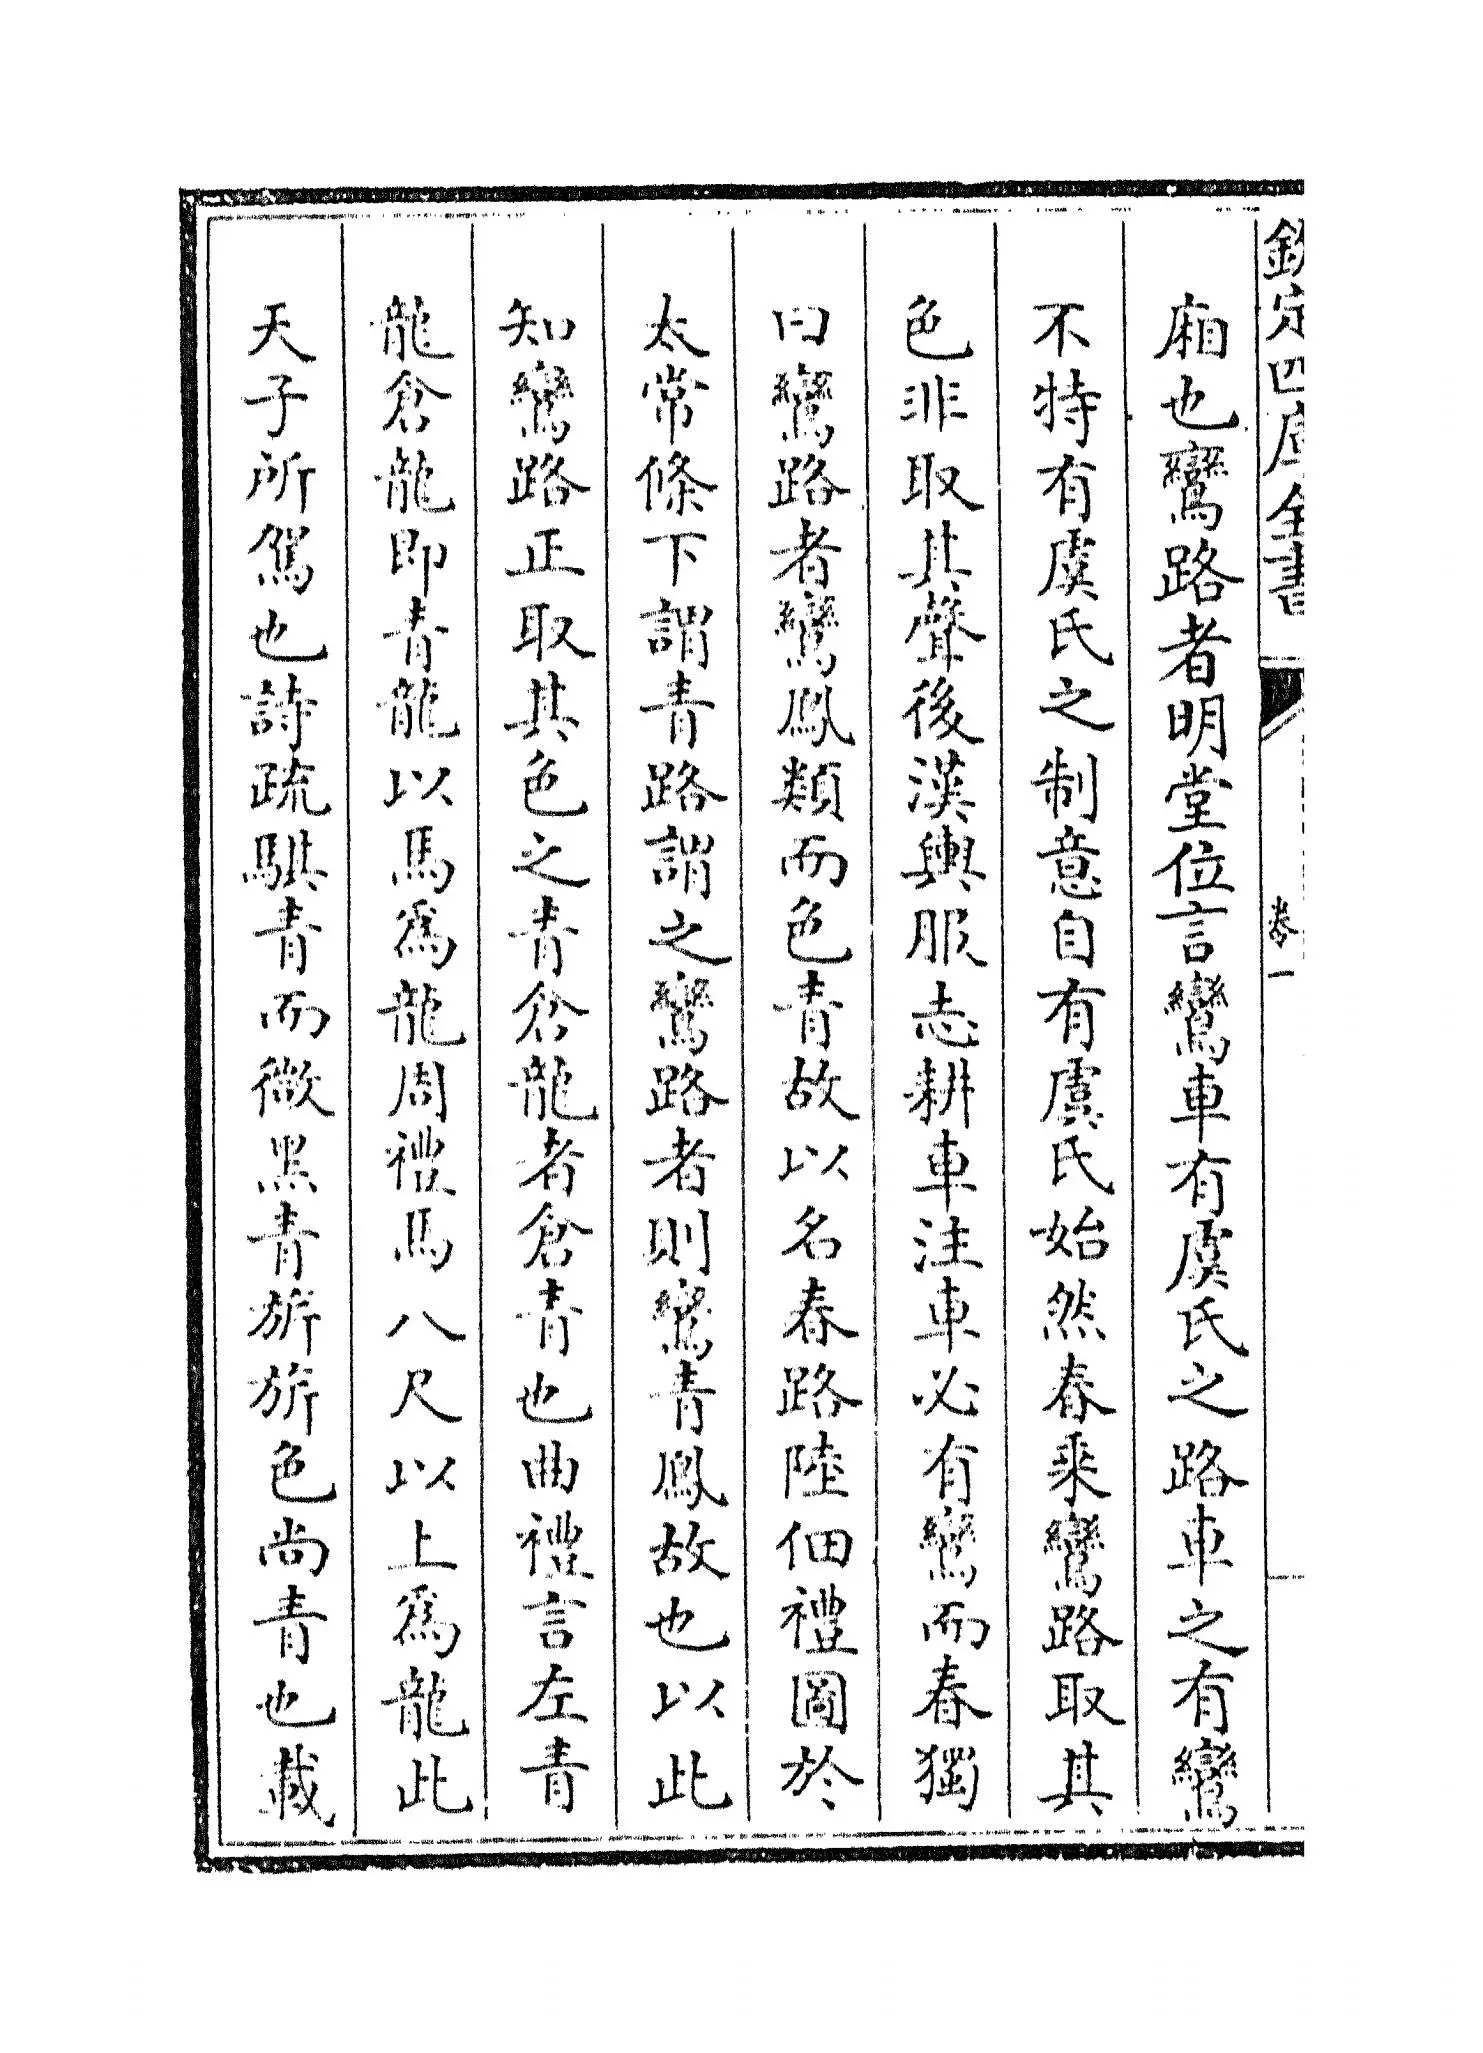 欽定四庫全書
卷一
廂也鸞路者明堂位言鸞車有虞氏之路車之有鸞
不特有虞氏之制意自有虞氏始然春乘鸞路取其
色非取其聲後漢輿服志耕車注車必有鸞而春獨
曰鸞路者鸞鳳類而色青故以名春路陸佃禮圖於
太常條下謂青路謂之鸞路者則鸞青鳳故也以此
知鸞路正取其色之青倉龍者倉青也曲禮言左青
龍倉龍即青龍以馬爲龍周禮馬八尺以上爲龍此
天子所駕也詩疏騏青而微黑青旂旂色尚青也載